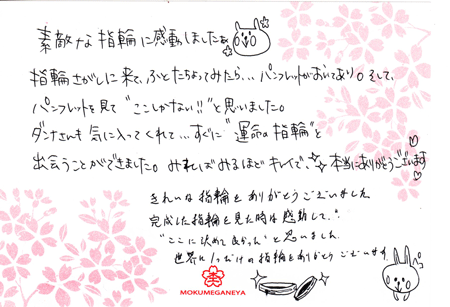 素敵な指輪に感動しました
指輪さがしに来て、ふとたちよってみたら... パンフレットがおいてあり。そして、
パンフレットを見て "ここしかない!!" と思いました。
ダンナさんも気に入ってくれて...すぐに "運命の指輪" と
出会うことができました。みればみるほどキレイで、本当にありがとうございます
きれいな指輪をありがとうございました
完成した指輪を見た時は感動して、
"ここに決めてよかった" と思いました。
世界に1つだけの指輪をありがとうございます。
MOKUMEGANEYA